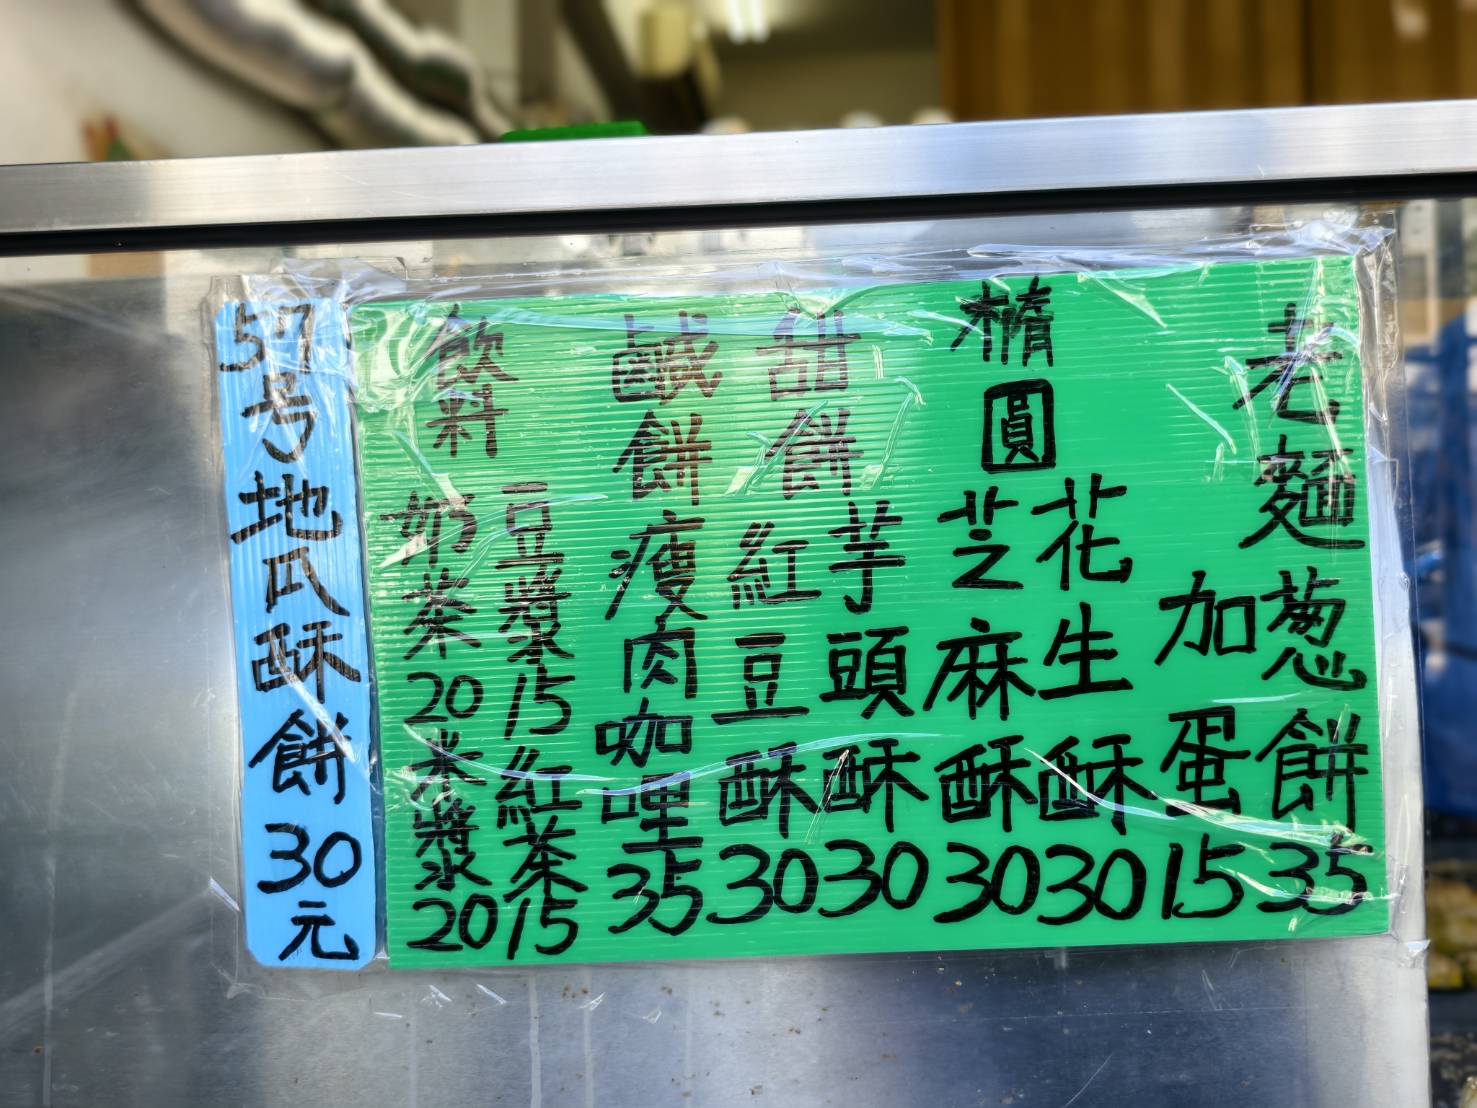 老麵葱餅35
加蛋15
橢圓
花生酥30
芝麻酥30
甜餅
芋頭酥30
紅豆酥30
鹹餅
瘦肉咖哩35
飲料
豆漿15紅茶15
奶茶20米漿20
57号地瓜酥餅30元